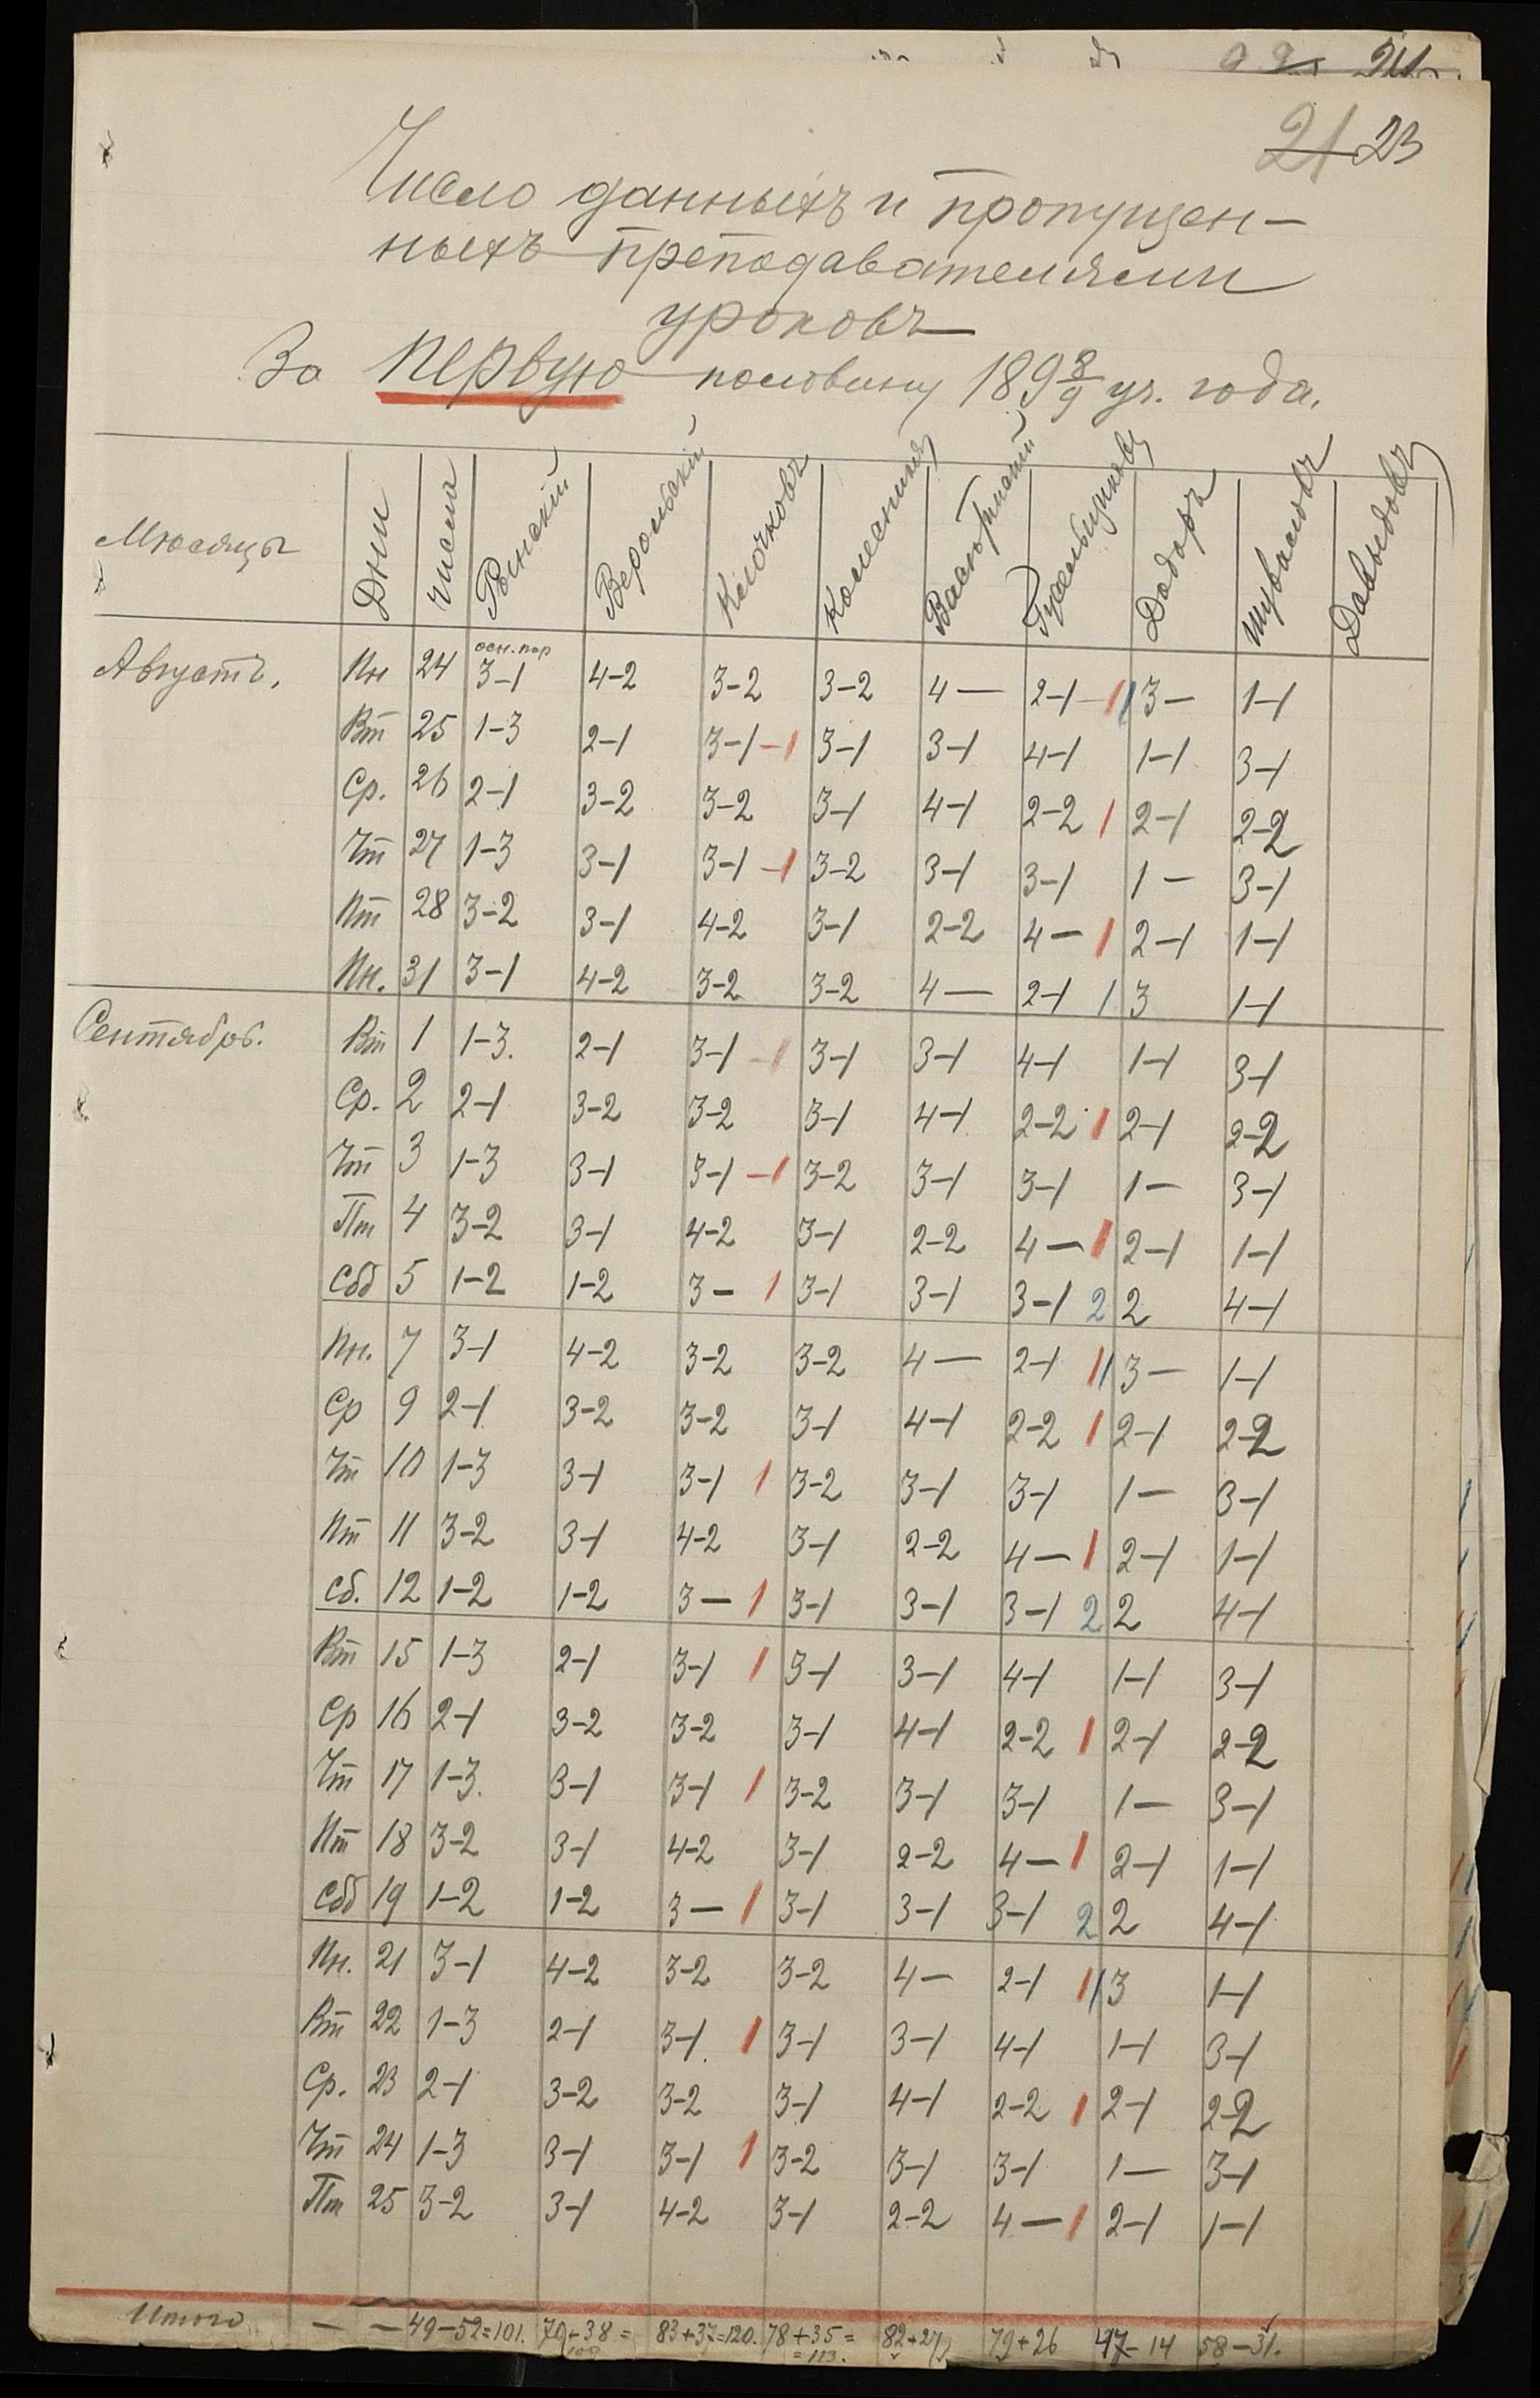 21 23
Число данныхъ и пропущен-
ныхъ преподавателями
уроковъ
За первую половину 189 8/9 уч. года.
Мѣсяцы Дни числа Рынскій Верольскій Клочковъ Колесника Додоръ Шуваловъ Давыдовъ
осн. пар
Августъ. Пн 24 3-1 4-2 3-2 3-2 4 — 2-1 - 1 1 3 — 1-1
Вт 25 1-3 2-1 3-1 - 1 3-1 3-1 4-1 1-1 3-1
Ср. 26 2-1 3-2 3-2 3-1 4-1 2-2 1 2-1 2-2
Чт 27 1-3 3-1 3-1 - 1 3-2 3-1 3-1 1 — 3-1
Пт 28 3-2 3-1 4-2 3-1 2-2 4 — 1 2-1 1-1
Пн. 31 3-1 4-2 3-2 3-2 4 — 2-1 1 3 1-1
Сентябрь. Вт 1 1-3. 2-1 3-1 - 1 3-1 3-1 4-1 1-1 3-1
Ср. 2 2-1 3-2 3-2 3-1 4-1 2-2 1 2-1 2-2
Чт 3 1-3 3-1 3-1 - 1 3-2 3-1 3-1 1 — 3-1
Пт 4 3-2 3-1 4-2 3-1 2-2 4 — 1 2-1 1-1
Сбб 5 1-2 1-2 3 — 1 3-1 3-1 3-1 2 2 4-1
Пн. 7 3-1 4-2 3-2 3-2 4 — 2-1 1 1 3 — 1-1
Ср 9 2-1 3-2 3-2 3-1 4-1 2-2 1 2-1 2-2
Чт 10 1-3 3-1 3-1 1 3-2 3-1 3-1 1 — 3-1
Пт 11 3-2 3-1 4-2 3-1 2-2 4 — 1 2-1 1-1
Сб. 12 1-2 1-2 3 — 1 3-1 3-1 3-1 2 2 4-1
Вт 15 1-3 2-1 3-1 1 3-1 3-1 4-1 1-1 3-1
Ср 16 2-1 3-2 3-2 3-1 4-1 2-2 1 2-1 2-2
Чт 17 1-3. 3-1 3-1 1 3-2 3-1 3-1 1 — 3-1
Пт 18 3-2 3-1 4-2 3-1 2-2 4 — 1 2-1 1-1
Сбб 19 1-2 1-2 3 — 1 3-1 3-1 3-1 2 2 4-1
Пн. 21 3-1 4-2 3-2 3-2 4 — 2-1 1 1 3 1-1
Вт 22 1-3 2-1 3-1. 1 3-1 3-1 4-1 1-1 3-1
Ср. 23 2-1 3-2 3-2 3-1 4-1 2-2 1 2-1 2-2
Чт 24 1-3 3-1 3-1 1 3-2 3-1 3-1 1 — 3-1
Пт 25 3-2 3-1 4-2 3-1 2-2 4 — 1 2-1 1-1
Итого — — 49-52=101. 70+38= 83+37=120. 78+35= 82+27 79+26 47-14 58-31.
=113.